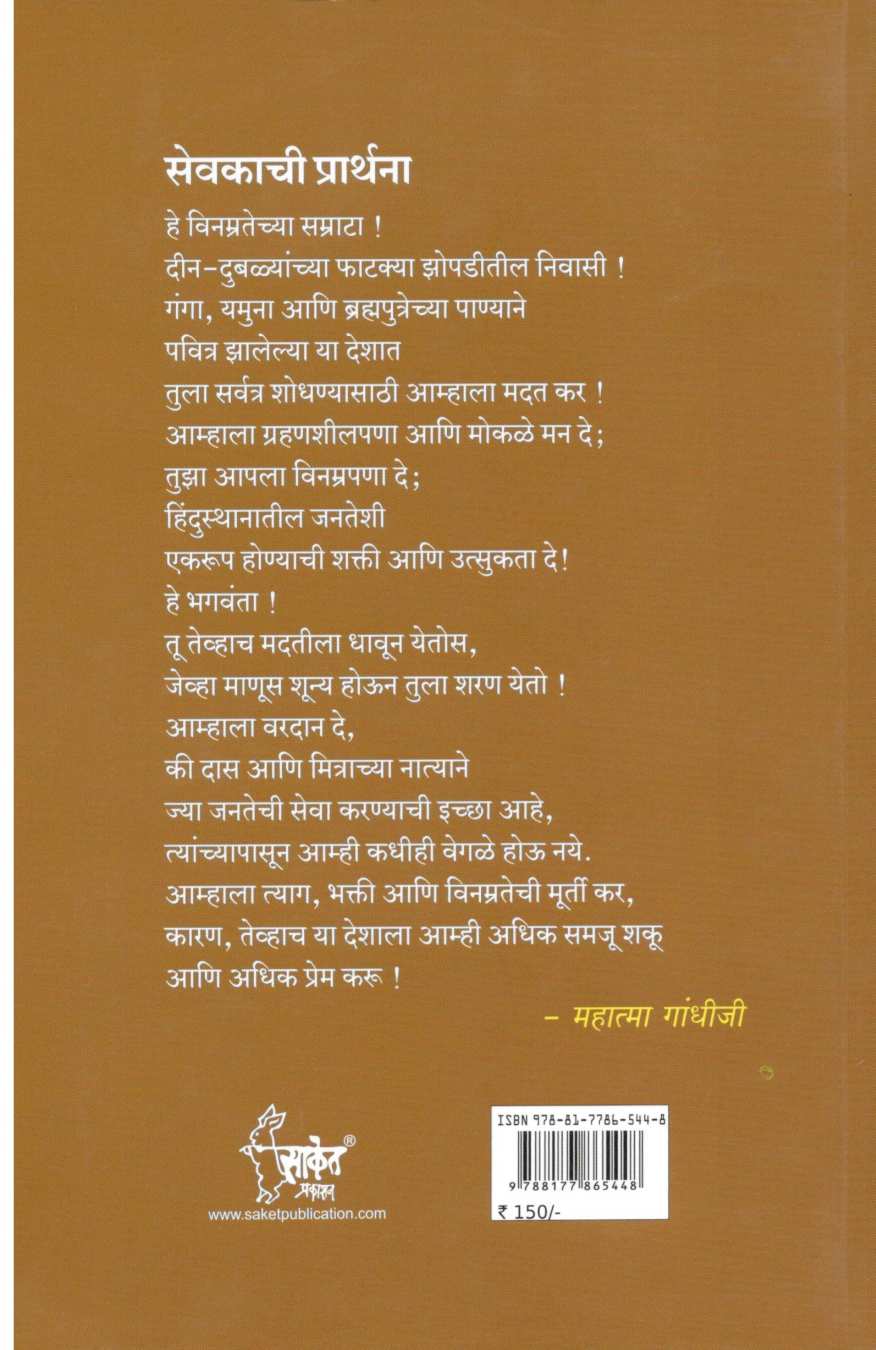 सेवकाची प्रार्थना
हे विनम्रतेच्या सम्राटा !
दीन-दुबळ्यांच्या फाटक्या झोपडीतील निवासी !
गंगा, यमुना आणि ब्रह्मपुत्रेच्या पाण्याने
पवित्र झालेल्या या देशात
तुला सर्वत्र शोधण्यासाठी आम्हाला मदत कर !
आम्हाला ग्रहणशीलपणा आणि मोकळे मन दे;
तुझा आपला विनम्रपणा दे;
हिंदुस्थानातील जनतेशी
एकरूप होण्याची शक्ती आणि उत्सुकता दे!
हे भगवंता !
तू तेव्हाच मदतीला धावून येतोस,
जेव्हा माणूस शून्य होऊन तुला शरण येतो !
आम्हाला वरदान दे,
की दास आणि मित्राच्या नात्याने
ज्या जनतेची सेवा करण्याची इच्छा आहे,
त्यांच्यापासून आम्ही कधीही वेगळे होऊ नये.
आम्हाला त्याग, भक्ती आणि विनम्रतेची मूर्ती कर,
कारण, तेव्हाच या देशाला आम्ही अधिक समजू शकू
आणि अधिक प्रेम करू !
- महात्मा गांधीजी
साकेत ®
प्रकाशन
www.saketpublication.com
ISBN 978-81-7786-544-8
9 788177 865448
₹ 150/-